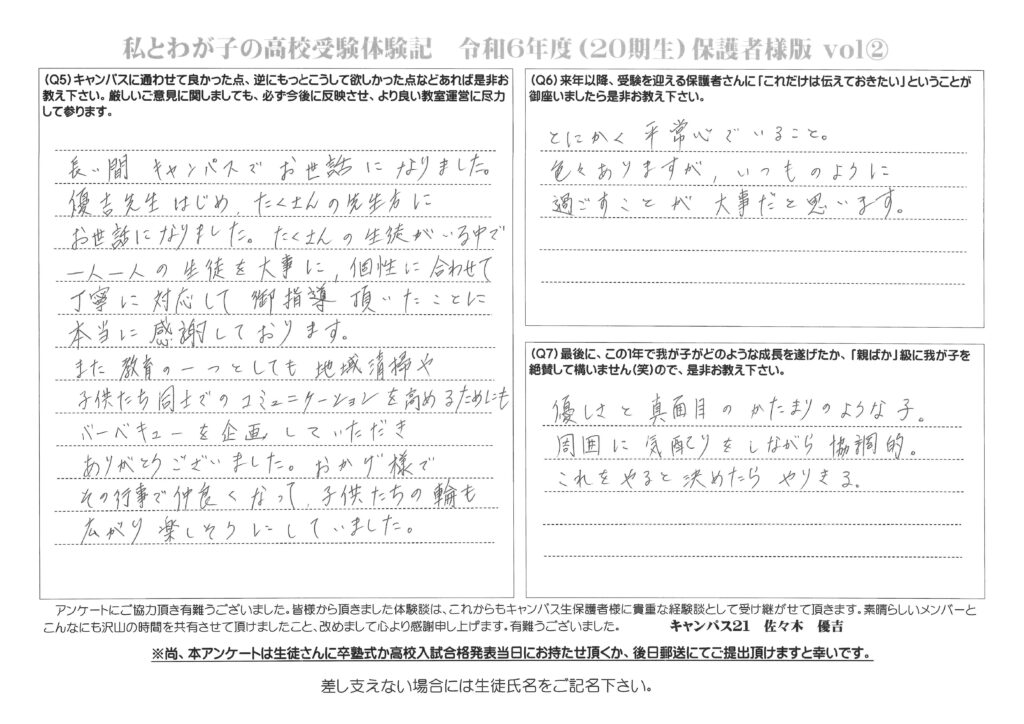 私とわが子の高校受験体験記　令和6年度（20期生）保護者様版 vol②
（Q5）キャンパスに通わせて良かった点、逆にもっとこうして欲しかった点などあれば是非お
教え下さい。厳しいご意見に関しましても、必ず今後に反映させ、より良い教室運営に尽力
して参ります。
長い間 キャンパスで お世話に なりました。
優吉先生はじめ、たくさんの先生方に
お世話になりました。たくさんの生徒がいる中で
一人一人の生徒を大事に、個性に合わせて
丁寧に対応して 御指導 頂いたことに
本当に感謝しております。
また 教育の一つとしても 地域清掃や
子供たち同士でのコミュニケーションを高めるためにも
バーベキューを企画していただき
ありがとうございました。おかげ様で
その行事で仲良くなって、子供たちの輪も
広がり 楽しそうにしていました。
（Q6）来年以降、受験を迎える保護者さんに「これだけは伝えておきたい」ということが
御座いましたら是非お教え下さい。
とにかく 平常心でいること。
色々ありますが、いつものように
過ごすことが 大事だと思います。
（Q7）最後に、この1年で我が子がどのような成長を遂げたか、「親ばか」級に我が子を
絶賛して構いません（笑）ので、是非お教え下さい。
優しさと真面目のかたまりのような子。
周囲に気配りをしながら協調的。
これをやると決めたら やりきる。
アンケートにご協力頂き有難うございました。皆様から頂きました体験談は、これからもキャンパス生保護者様に貴重な経験談として受け継がせて頂きます。素晴らしいメンバーと
こんなにも沢山の時間を共有させて頂けましたこと、改めまして心より感謝申し上げます。有難うございました。　キャンパス21　佐々木　優吉
※尚、本アンケートは生徒さんに卒塾式か高校入試合格発表当日にお持たせ頂くか、後日郵送にてご提出頂けますと幸いです。
差し支えない場合には生徒氏名をご記名下さい。